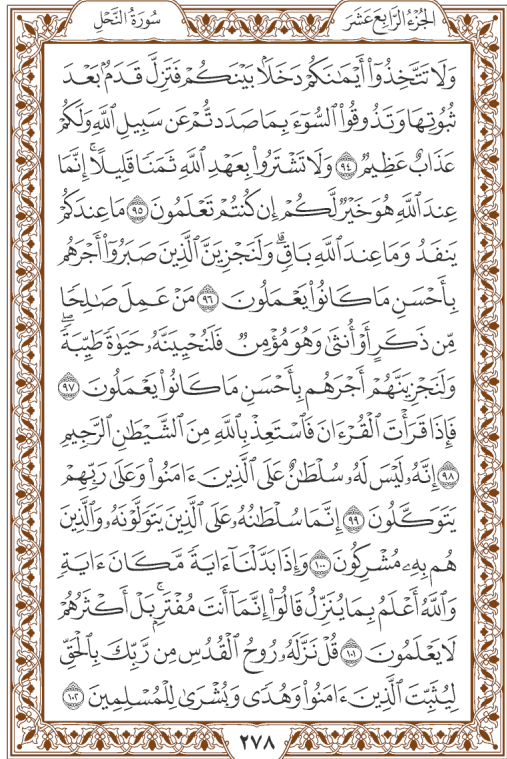 سُورَةُ النَّحْلِ
الجُزْءُ الرَّابِعَ عَشَرَ
وَلَا تَتَّخِذُوٓاْ أَيْمَٰنَكُمْ دَخَلَۢا بَيْنَكُمْ فَتَزِلَّ قَدَمُۢ بَعْدَ
ثُبُوتِهَا وَتَذُوقُواْ ٱلسُّوٓءَ بِمَا صَدَدتُّمْ عَن سَبِيلِ ٱللَّهِ وَلَكُمْ
عَذَابٌ عَظِيمٌ ٩٤ وَلَا تَشْتَرُواْ بِعَهْدِ ٱللَّهِ ثَمَنٗا قَلِيلًاۚ إِنَّمَا
عِندَ ٱللَّهِ هُوَ خَيْرٞ لَّكُمْ إِن كُنتُمْ تَعْلَمُونَ ٩٥ مَا عِندَكُمْ
يَنفَدُ وَمَا عِندَ ٱللَّهِ بَاقٖۗ وَلَنَجْزِيَنَّ ٱلَّذِينَ صَبَرُوٓاْ أَجْرَهُم
بِأَحْسَنِ مَا كَانُواْ يَعْمَلُونَ ٩٦ مَنْ عَمِلَ صَٰلِحٗا
مِّن ذَكَرٍ أَوْ أُنثَىٰ وَهُوَ مُؤْمِنٞ فَلَنُحْيِيَنَّهُۥ حَيَوٰةٗ طَيِّبَةٗۖ
وَلَنَجْزِيَنَّهُمْ أَجْرَهُم بِأَحْسَنِ مَا كَانُواْ يَعْمَلُونَ ٩٧
فَإِذَا قَرَأْتَ ٱلْقُرْءَانَ فَٱسْتَعِذْ بِٱللَّهِ مِنَ ٱلشَّيْطَٰنِ ٱلرَّجِيمِ
٩٨ إِنَّهُۥ لَيْسَ لَهُۥ سُلْطَٰنٌ عَلَى ٱلَّذِينَ ءَامَنُواْ وَعَلَىٰ رَبِّهِمْ
يَتَوَكَّلُونَ ٩٩ إِنَّمَا سُلْطَٰنُهُۥ عَلَى ٱلَّذِينَ يَتَوَلَّوْنَهُۥ وَٱلَّذِينَ
هُم بِهِۦ مُشْرِكُونَ ١٠٠ وَإِذَا بَدَّلْنَآ ءَايَةٗ مَّكَانَ ءَايَةٖ
وَٱللَّهُ أَعْلَمُ بِمَا يُنَزِّلُ قَالُوٓاْ إِنَّمَآ أَنتَ مُفْتَرِۭۚ بَلْ أَكْثَرُهُمْ
لَا يَعْلَمُونَ ١٠١ قُلْ نَزَّلَهُۥ رُوحُ ٱلْقُدُسِ مِن رَّبِّكَ بِٱلْحَقِّ
لِيُثَبِّتَ ٱلَّذِينَ ءَامَنُواْ وَهُدٗى وَبُشْرَىٰ لِلْمُسْلِمِينَ ١٠٢
٢٧٨